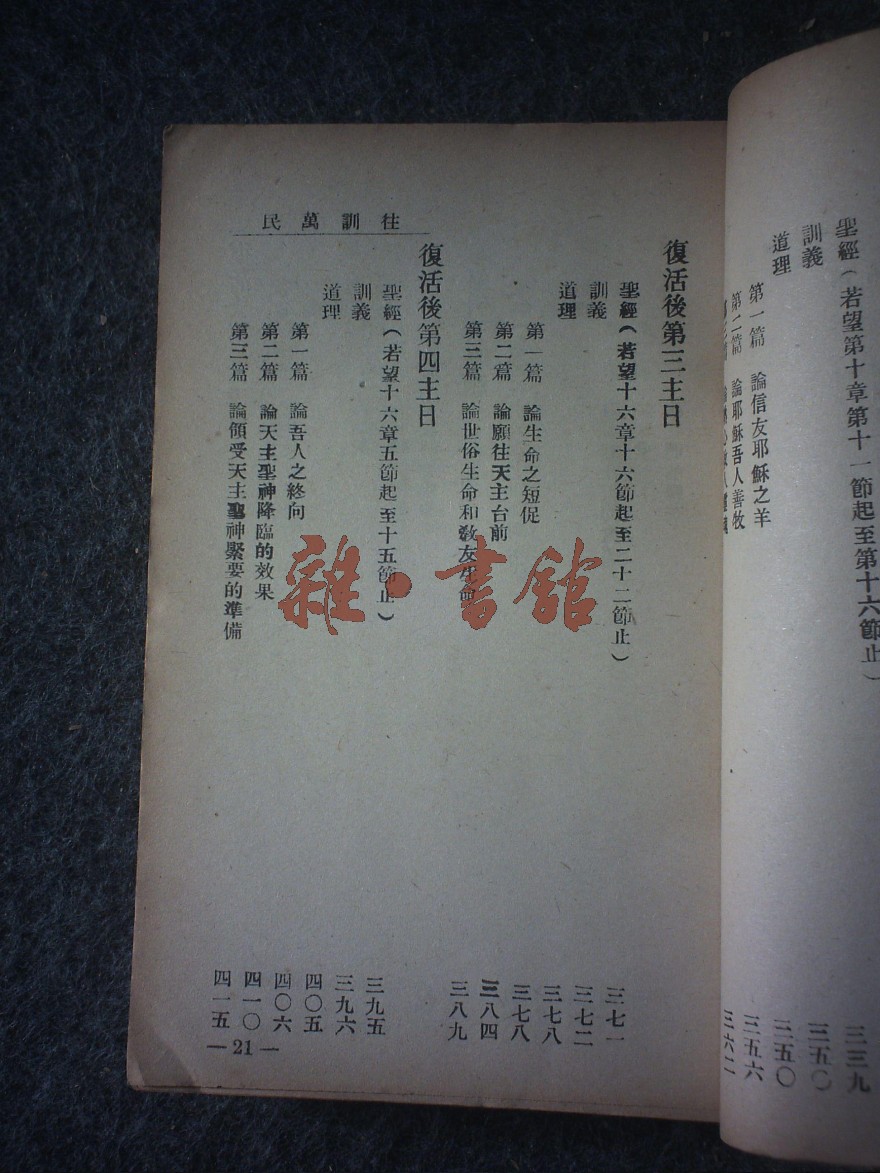 聖經(若望第十章第十一節起至第十六節止) 三三九
訓義 三五〇
道理 三五〇
第一篇 論信友耶穌之羊 三五六
第二篇 論耶穌吾人善牧 三六二
往訓萬民
復活後第三主日
聖經(若望十六章十六節起至二十二節止) 三七一
訓義 三七二
道理 三七八
第一篇 論生命之短促 三七八
第二篇 論願往天主台前 三八四
第三篇 論世俗生命和敎友生命 三八九
復活後第四主日
聖經(若望十六章五節起至十五節止) 三九五
訓義 三九六
道理 四〇五
第一篇 論吾人之終向 四〇六
第二篇 論天主聖神降臨的效果 四一〇
第三篇 論領受天主聖神緊要的準備 四一五
—21—
雜·書館